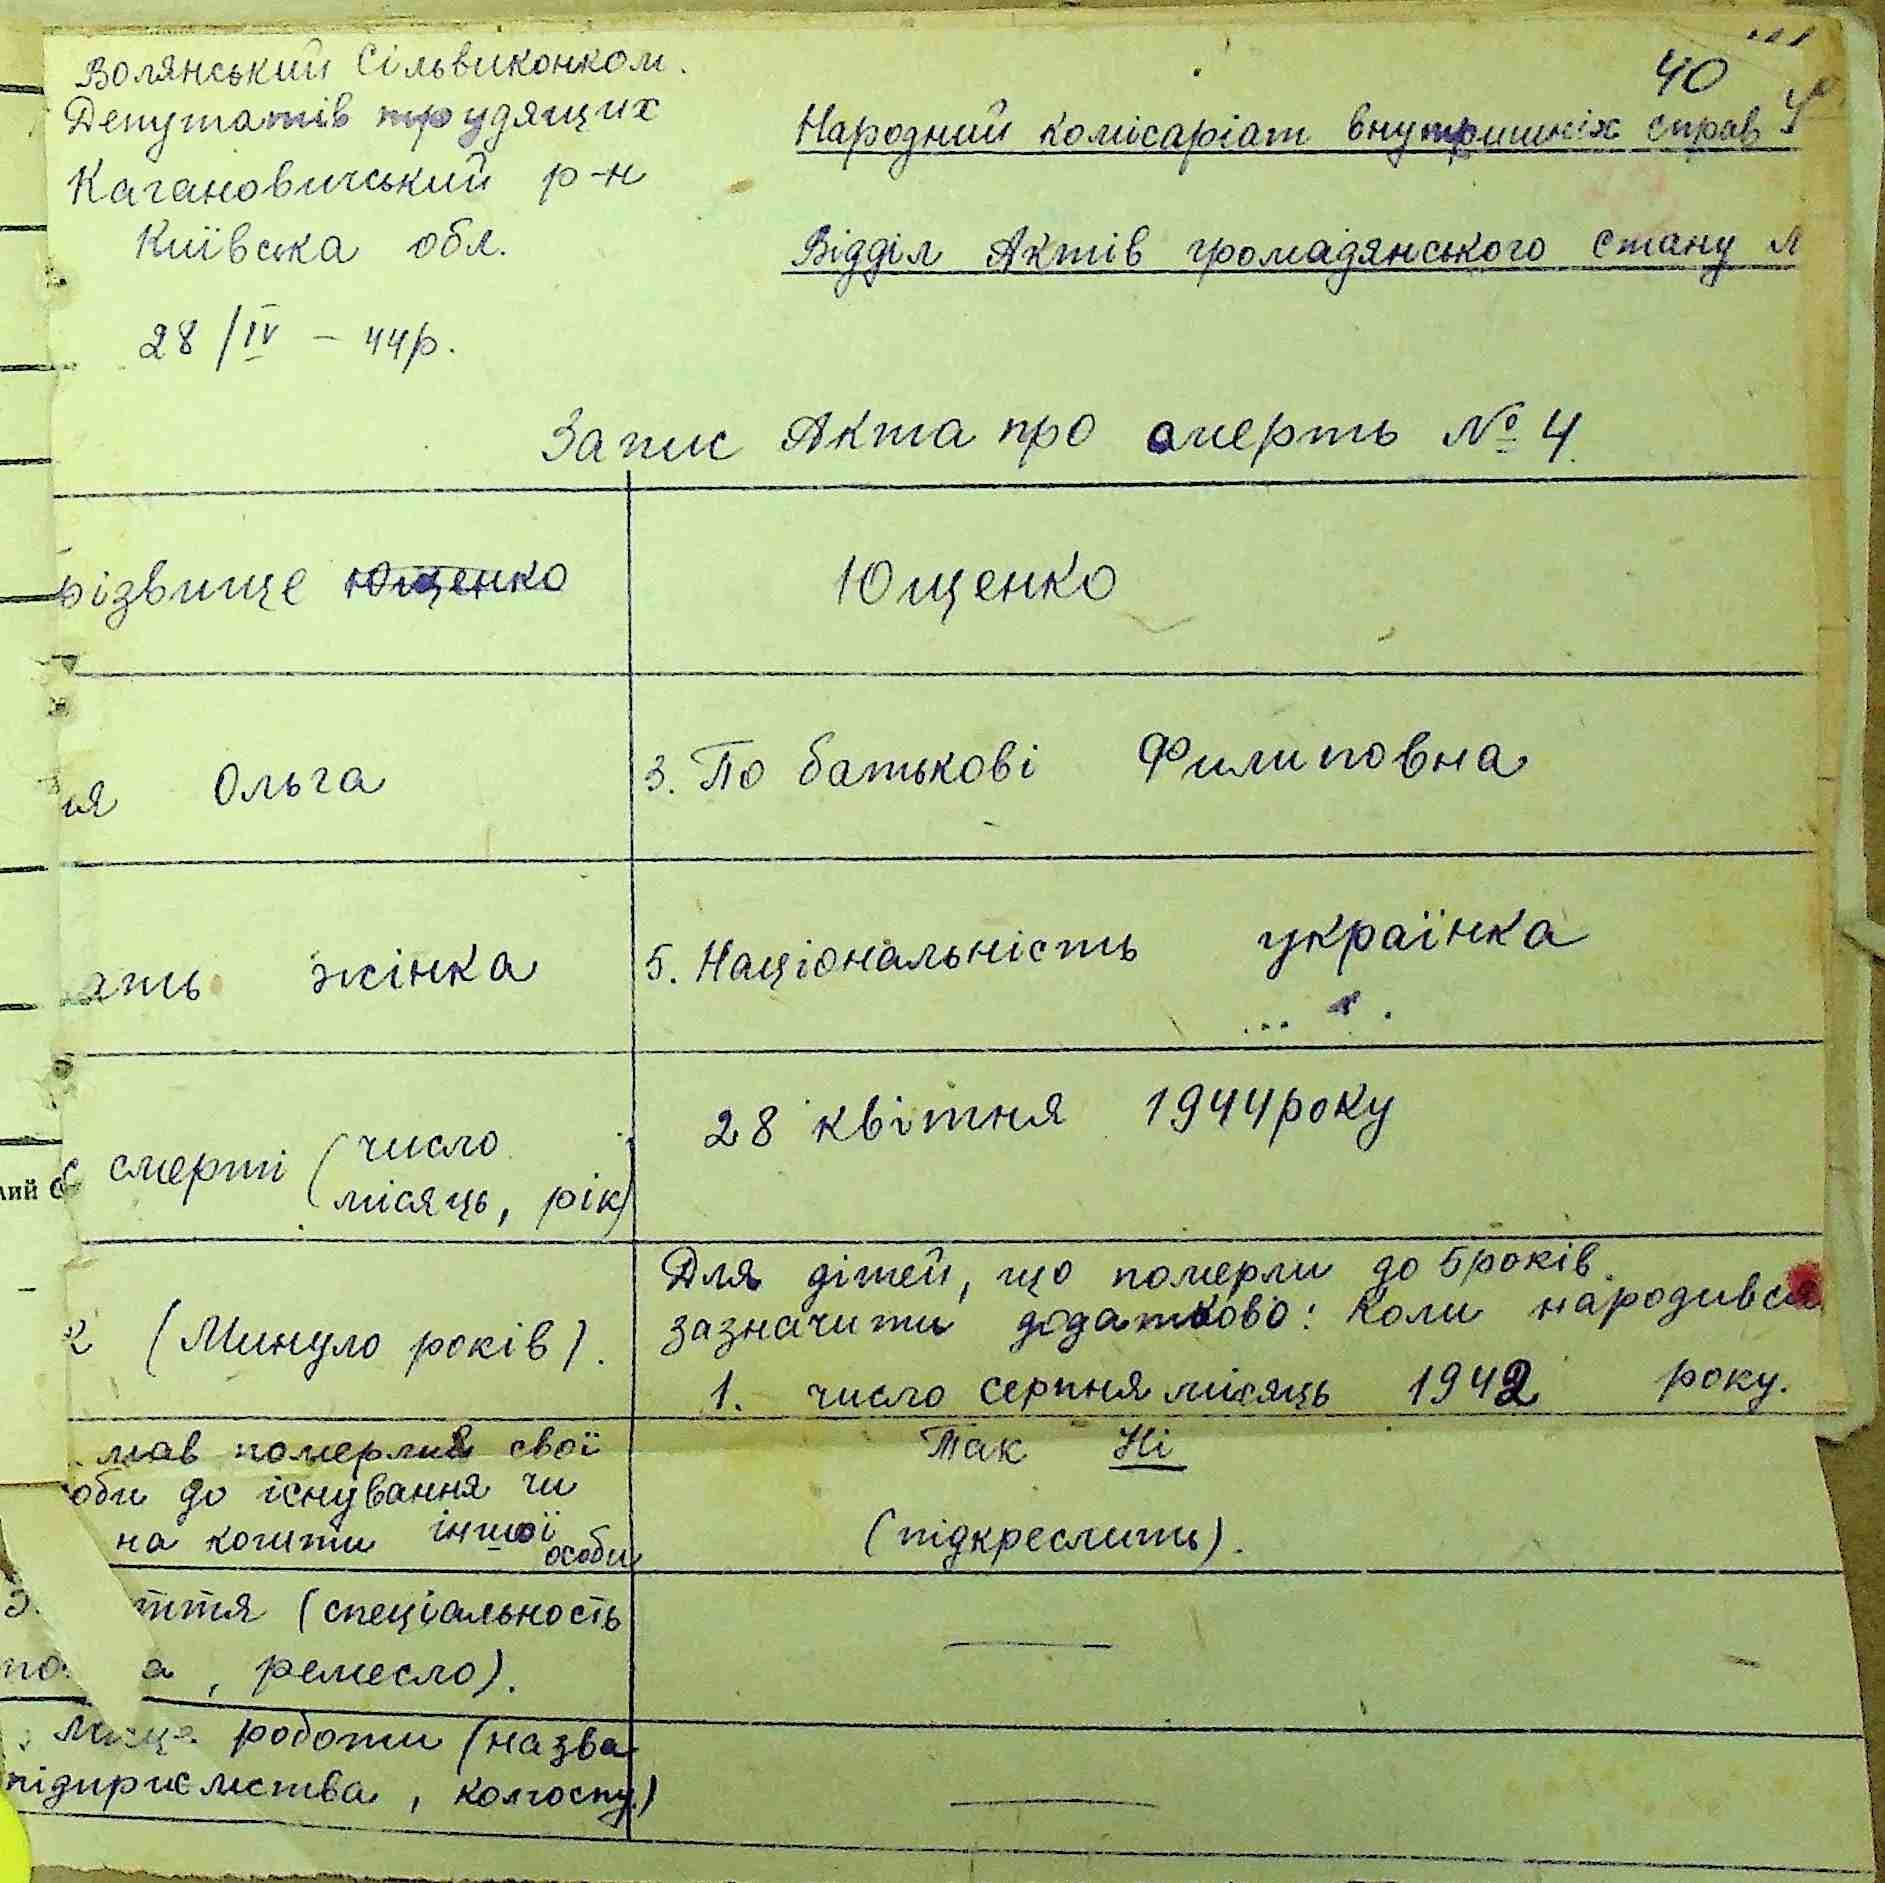 40
Волянський Сільвиконком.
Депутатів трудящих
Кагановичський р-н
Київська обл.
28/IV - 44р.
Народний комісаріат внутришніх справ
Відділ Актів громадянського стану
Запис Акта про смерть № 4.
різвище Ющенко
Ющенко
мя Ольга
3. По батькові Филиповна
ать жінка
5. Національність українка
смерті (число
місяць, рік)
28 квітня 1944 року
2 (Минуло років).
Для дітей, що померли до 5 років.
зазначити додатково: Коли народився
1. число серпня місяць 1942 року.
мав померлий свої
оби до існування чи
на кошти іншої
особи
Так Ні
(підкреслить).
ття (спеціальность
а, ремесло).
Місце роботи (назва
підприємства, колгоспу)